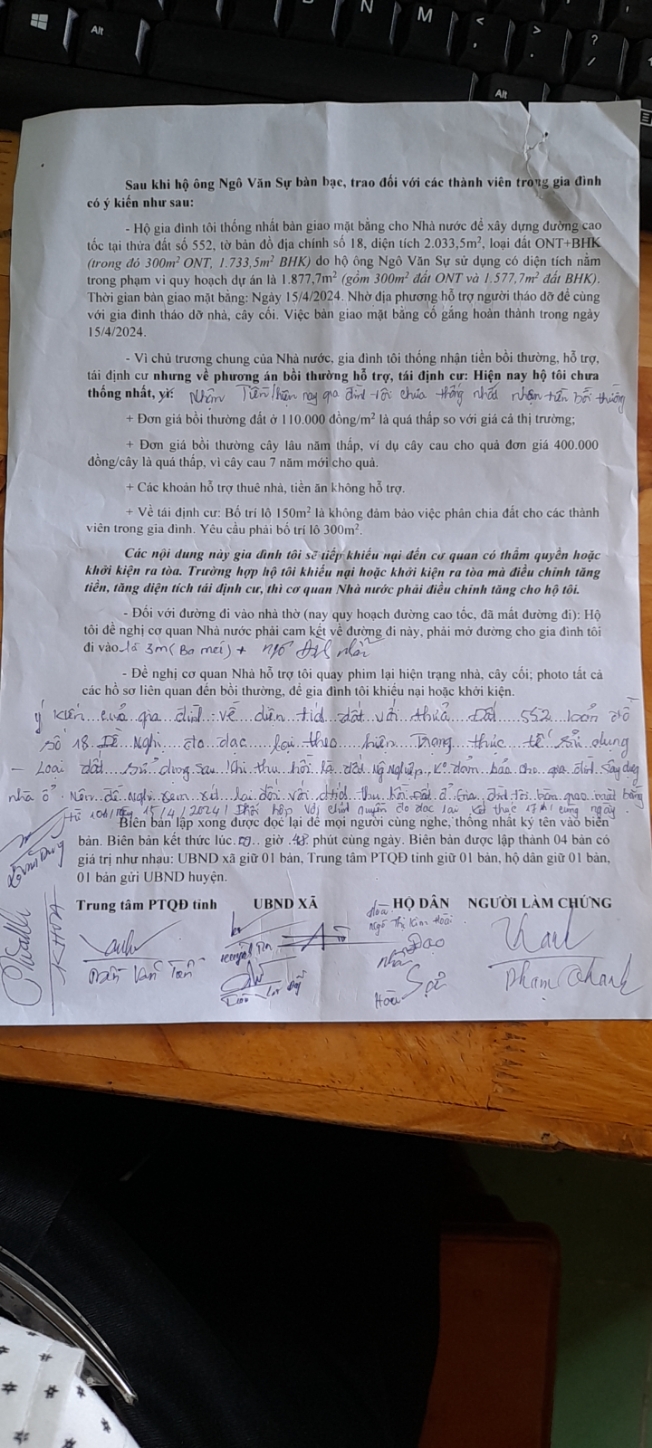 Alt
N
M
<
,
>
.
?
/
Alt
Sau khi hộ ông Ngô Văn Sự bàn bạc, trao đổi với các thành viên trong gia đình
có ý kiến như sau:
- Hộ gia đình tôi thống nhất bàn giao mặt bằng cho Nhà nước để xây dựng đường cao
tốc tại thửa đất số 552, tờ bản đồ địa chính số 18, diện tích 2.033,5m², loại đất ONT+BHK
(trong đó 300m² ONT, 1.733,5m² BHK) do hộ ông Ngô Văn Sự sử dụng có diện tích nằm
trong phạm vi quy hoạch dự án là 1.877,7m² (gồm 300m² đất ONT và 1.577,7m² đất BHK).
Thời gian bàn giao mặt bằng: Ngày 15/4/2024. Nhờ địa phương hỗ trợ người tháo dỡ để cùng
với gia đình tháo dỡ nhà, cây cối. Việc bàn giao mặt bằng cố gắng hoàn thành trong ngày
15/4/2024.
- Vì chủ trương chung của Nhà nước, gia đình tôi thống nhận tiền bồi thường, hỗ trợ,
tái định cư nhưng về phương án bồi thường hỗ trợ, tái định cư: Hiện nay hộ tôi chưa
thống nhất, vì: Nhận Tiền hiện nay gia đình tôi chưa thống nhất nhận tiền bồi thường
+ Đơn giá bồi thường đất ở 110.000 đồng/m² là quá thấp so với giá cả thị trường;
+ Đơn giá bồi thường cây lâu năm thấp, ví dụ cây cau cho quả đơn giá 400.000
đồng/cây là quá thấp, vì cây cau 7 năm mới cho quả.
+ Các khoản hỗ trợ thuê nhà, tiền ăn không hỗ trợ.
+ Về tái định cư: Bố trí lô 150m² là không đảm bảo việc phân chia đất cho các thành
viên trong gia đình. Yêu cầu phải bố trí lô 300m².
Các nội dung này gia đình tôi sẽ tiếp khiếu nại đến cơ quan có thẩm quyền hoặc
khởi kiện ra tòa. Trường hợp hộ tôi khiếu nại hoặc khởi kiện ra tòa mà điều chỉnh tăng
tiền, tăng diện tích tái định cư, thì cơ quan Nhà nước phải điều chỉnh tăng cho hộ tôi.
- Đối với đường đi vào nhà thờ (nay quy hoạch đường cao tốc, đã mất đường đi): Hộ
tôi đề nghị cơ quan Nhà nước phải cam kết về đường đi này, phải mở đường cho gia đình tôi
đi vào là 3m (Ba mét) +
- Đề nghị cơ quan Nhà hỗ trợ tôi quay phim lại hiện trạng nhà, cây cối; photo tất cả
các hồ sơ liên quan đến bồi thường, để gia đình tôi khiếu nại hoặc khởi kiện.
ý kiến của gia đình: về diện tích đất với thửa Đất 552 bản đồ
số 18 Đề Nghị đo đạc lại theo hiện Trạng thực tế sử dụng
- Loại đất sử dụng sau khi thu hồi là đất Nông Nghiệp, Ko đảm bảo cho gia đình Xây dựng
nhà ở. Nên đề nghị xem xét lại đối với thu hồi đất ở Gia đình tôi bàn giao mặt bằng
15/4/2024 đo đạc lại kết thúc cùng ngày.
Biên bản lập xong được đọc lại để mọi người cùng nghe, thống nhất ký tên vào biên
bản. Biên bản kết thúc lúc giờ 48 phút cùng ngày. Biên bản được lập thành 04 bản có
giá trị như nhau: UBND xã giữ 01 bản, Trung tâm PTQĐ tỉnh giữ 01 bản, hộ dân giữ 01 bản,
01 bản gửi UBND huyện.
Trung tâm PTQĐ tỉnh UBND XÃ HỘ DÂN NGƯỜI LÀM CHỨNG
Hoài
Ngô Thị Kim Hoài
Đao
Trần Văn Tốn
Phạm Chanh
KHOA